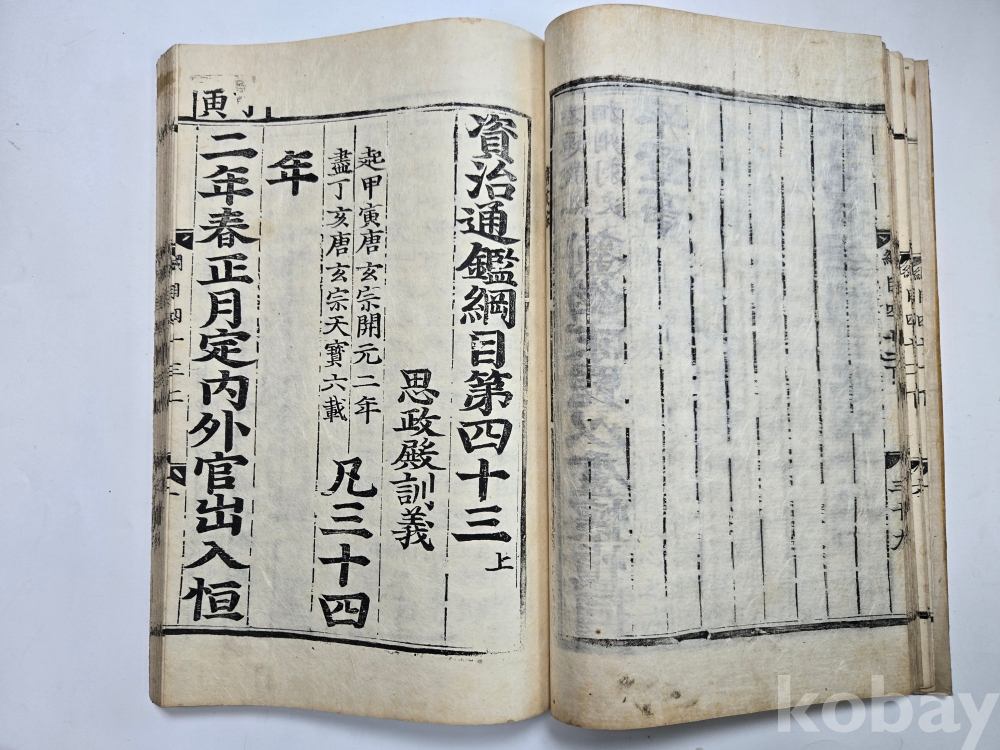 資治通鑑綱目第四十三 上
思政殿訓義
起甲寅唐玄宗開元二年
盡丁亥唐玄宗天寶六載
凡三十四
年
二年春正月定內外官出入恒
綱目四十
kobay